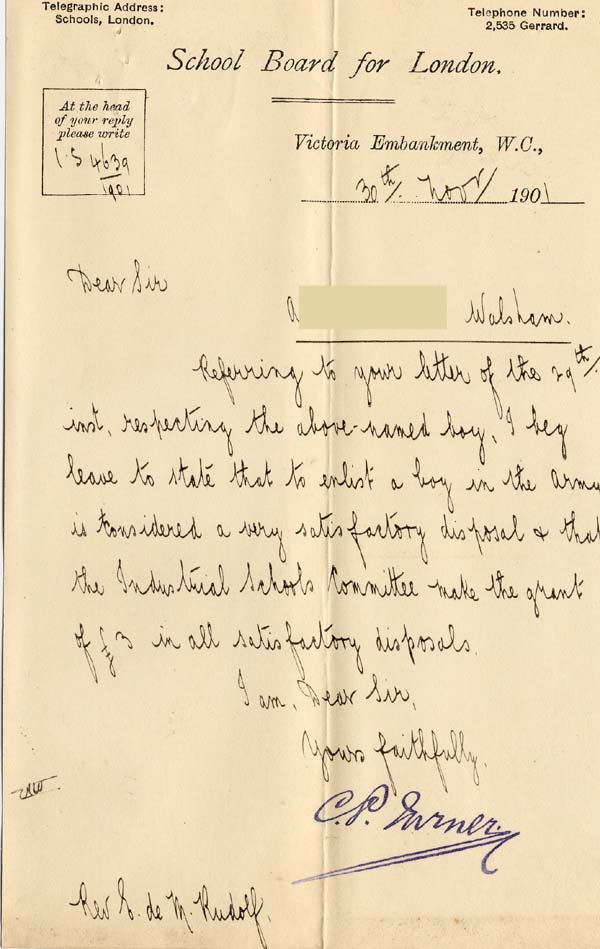 Telegraphic Address:
Schools, London.
Telephone Number:
2,535 Gerrard.
School Board for London.
At the head
of your reply
please write
I.S 4639
1901
Victoria Embankment, W.C.,
30th/ Novr/ 1901
Dear Sir
A Walsham.
Referring to your letter of the 29th/
inst, respecting the above-named boy, I beg
leave to state that to enlist a boy in the Army
is considered a very satisfactory disposal & that
the Industrial Schools Committee make the grant
of £3 in all satisfactory disposals.
I am, Dear Sir,
Yours faithfully.
C.P. Turner.
Rev E. de M. Rudolf.